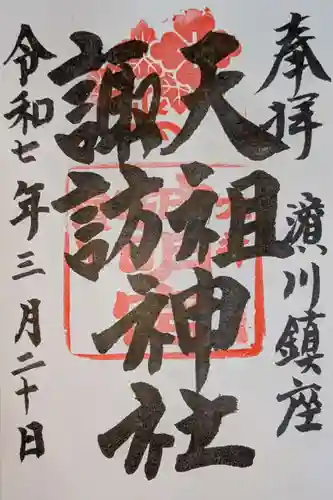 奉拝
濱川鎮座
天祖神社
諏訪神社
令和七年三月二十日